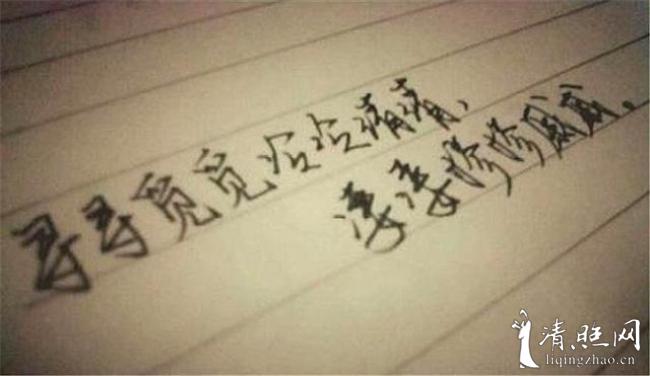 寻寻觅觅冷冷清清、
凄凄惨惨戚戚。
清照网
liqingzhao.cn